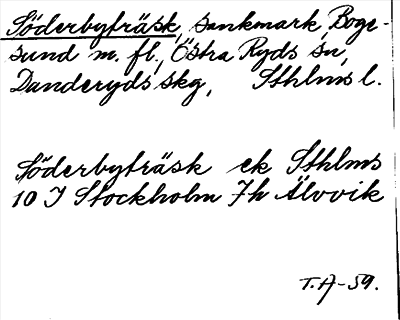 Söderbyträsk, sankmark, Boge-
sund m. fl., Östra Ryds sn,
Danderyds skg, Sthlms l.
Söderbyträsk ek Sthlms
10 I Stockholm 7h Älvvik
T.A-59.